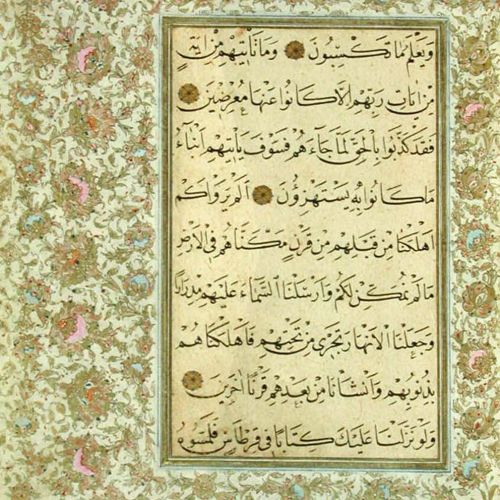 وَيَعْلَمُ مَا تَكْسِبُونَ وَمَا تَأْتِيهِمْ مِنْ اٰيَةٍ
مِنْ اٰيَاتِ رَبِّهِمْ اِلَّا كَانُوا عَنْهَا مُعْرِضِينَ
فَقَدْ كَذَّبُوا بِالْحَقِّ لَمَّا جَاۤءَهُمْ فَسَوْفَ يَأْتِيهِمْ اَنْبَاۤءُ
مَا كَانُوا بِهِ يَسْتَهْزِؤُنَ اَلَمْ يَرَوْا كَمْ
اَهْلَكْنَا مِنْ قَبْلِهِمْ مِنْ قَرْنٍ مَكَّنَّاهُمْ فِي الْاَرْضِ
مَا لَمْ نُمَكِّنْ لَكُمْ وَاَرْسَلْنَا السَّمَاۤءَ عَلَيْهِمْ مِدْرَارًا
وَجَعَلْنَا الْاَنْهَارَ تَجْرِي مِنْ تَحْتِهِمْ فَاَهْلَكْنَاهُمْ
بِذُنُوبِهِمْ وَاَنْشَأْنَا مِنْ بَعْدِهِمْ قَرْنًا اٰخَرِينَ
وَلَوْ نَزَّلْنَا عَلَيْكَ كِتَابًا فِي قِرْطَاسٍ فَلَمَسُوهُ